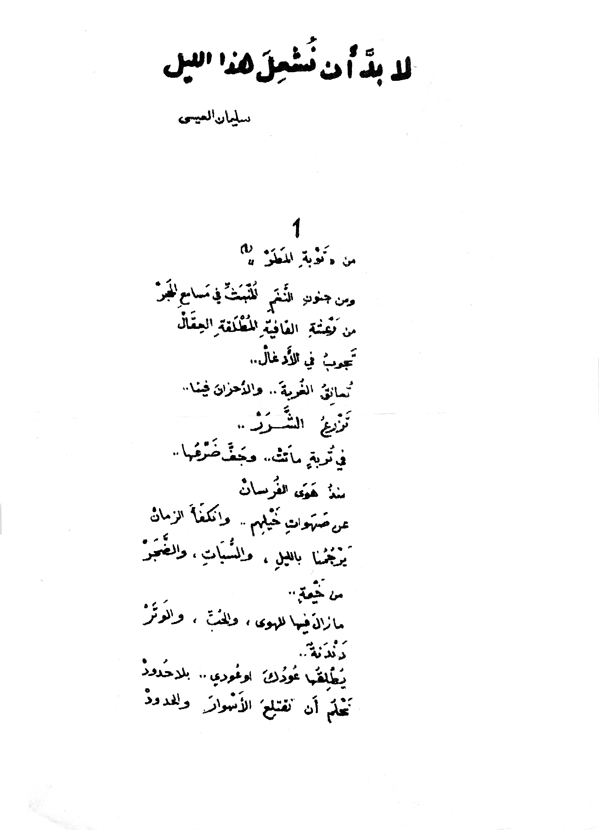 لا بدَّ أن نُشعِلَ هذا الليل
سليمان العيسى
1
من «نَوْبةِ المَطَرْ» (١)
ومن جنونِ النَّغمِ المُنْبَثِّ في مَسامعِ الحَجَرْ
من رَعْشةِ القافيةِ المُطْلَقةِ العِقالْ
تَجوبُ في الأَدغالْ..
تُعانِقُ الغُربةَ.. والأحزانَ فينا..
تَزْرعُ الشَّرَرْ..
في تُربةٍ ماتتْ.. وجَفَّ ضَرْعُها..
منذُ هَوَى الفُرسانْ
عن صَهَواتِ خَيْلِهم.. وانكفَأَ الزمانْ
يَرْجُمُنا بالليلِ، والسُّبَاتِ، والضَّجَرْ
من خَيْمةٍ..
ما زالَ فيها للهوى، والحُبِّ، والوَتَرْ
دَنْدَنةٌ..
يُطْلِقُها عُودُكَ أو عُودي.. بلا حُدودْ
نَحْلُمُ أن نَقتلِعَ الأَسْوارَ والحدودْ